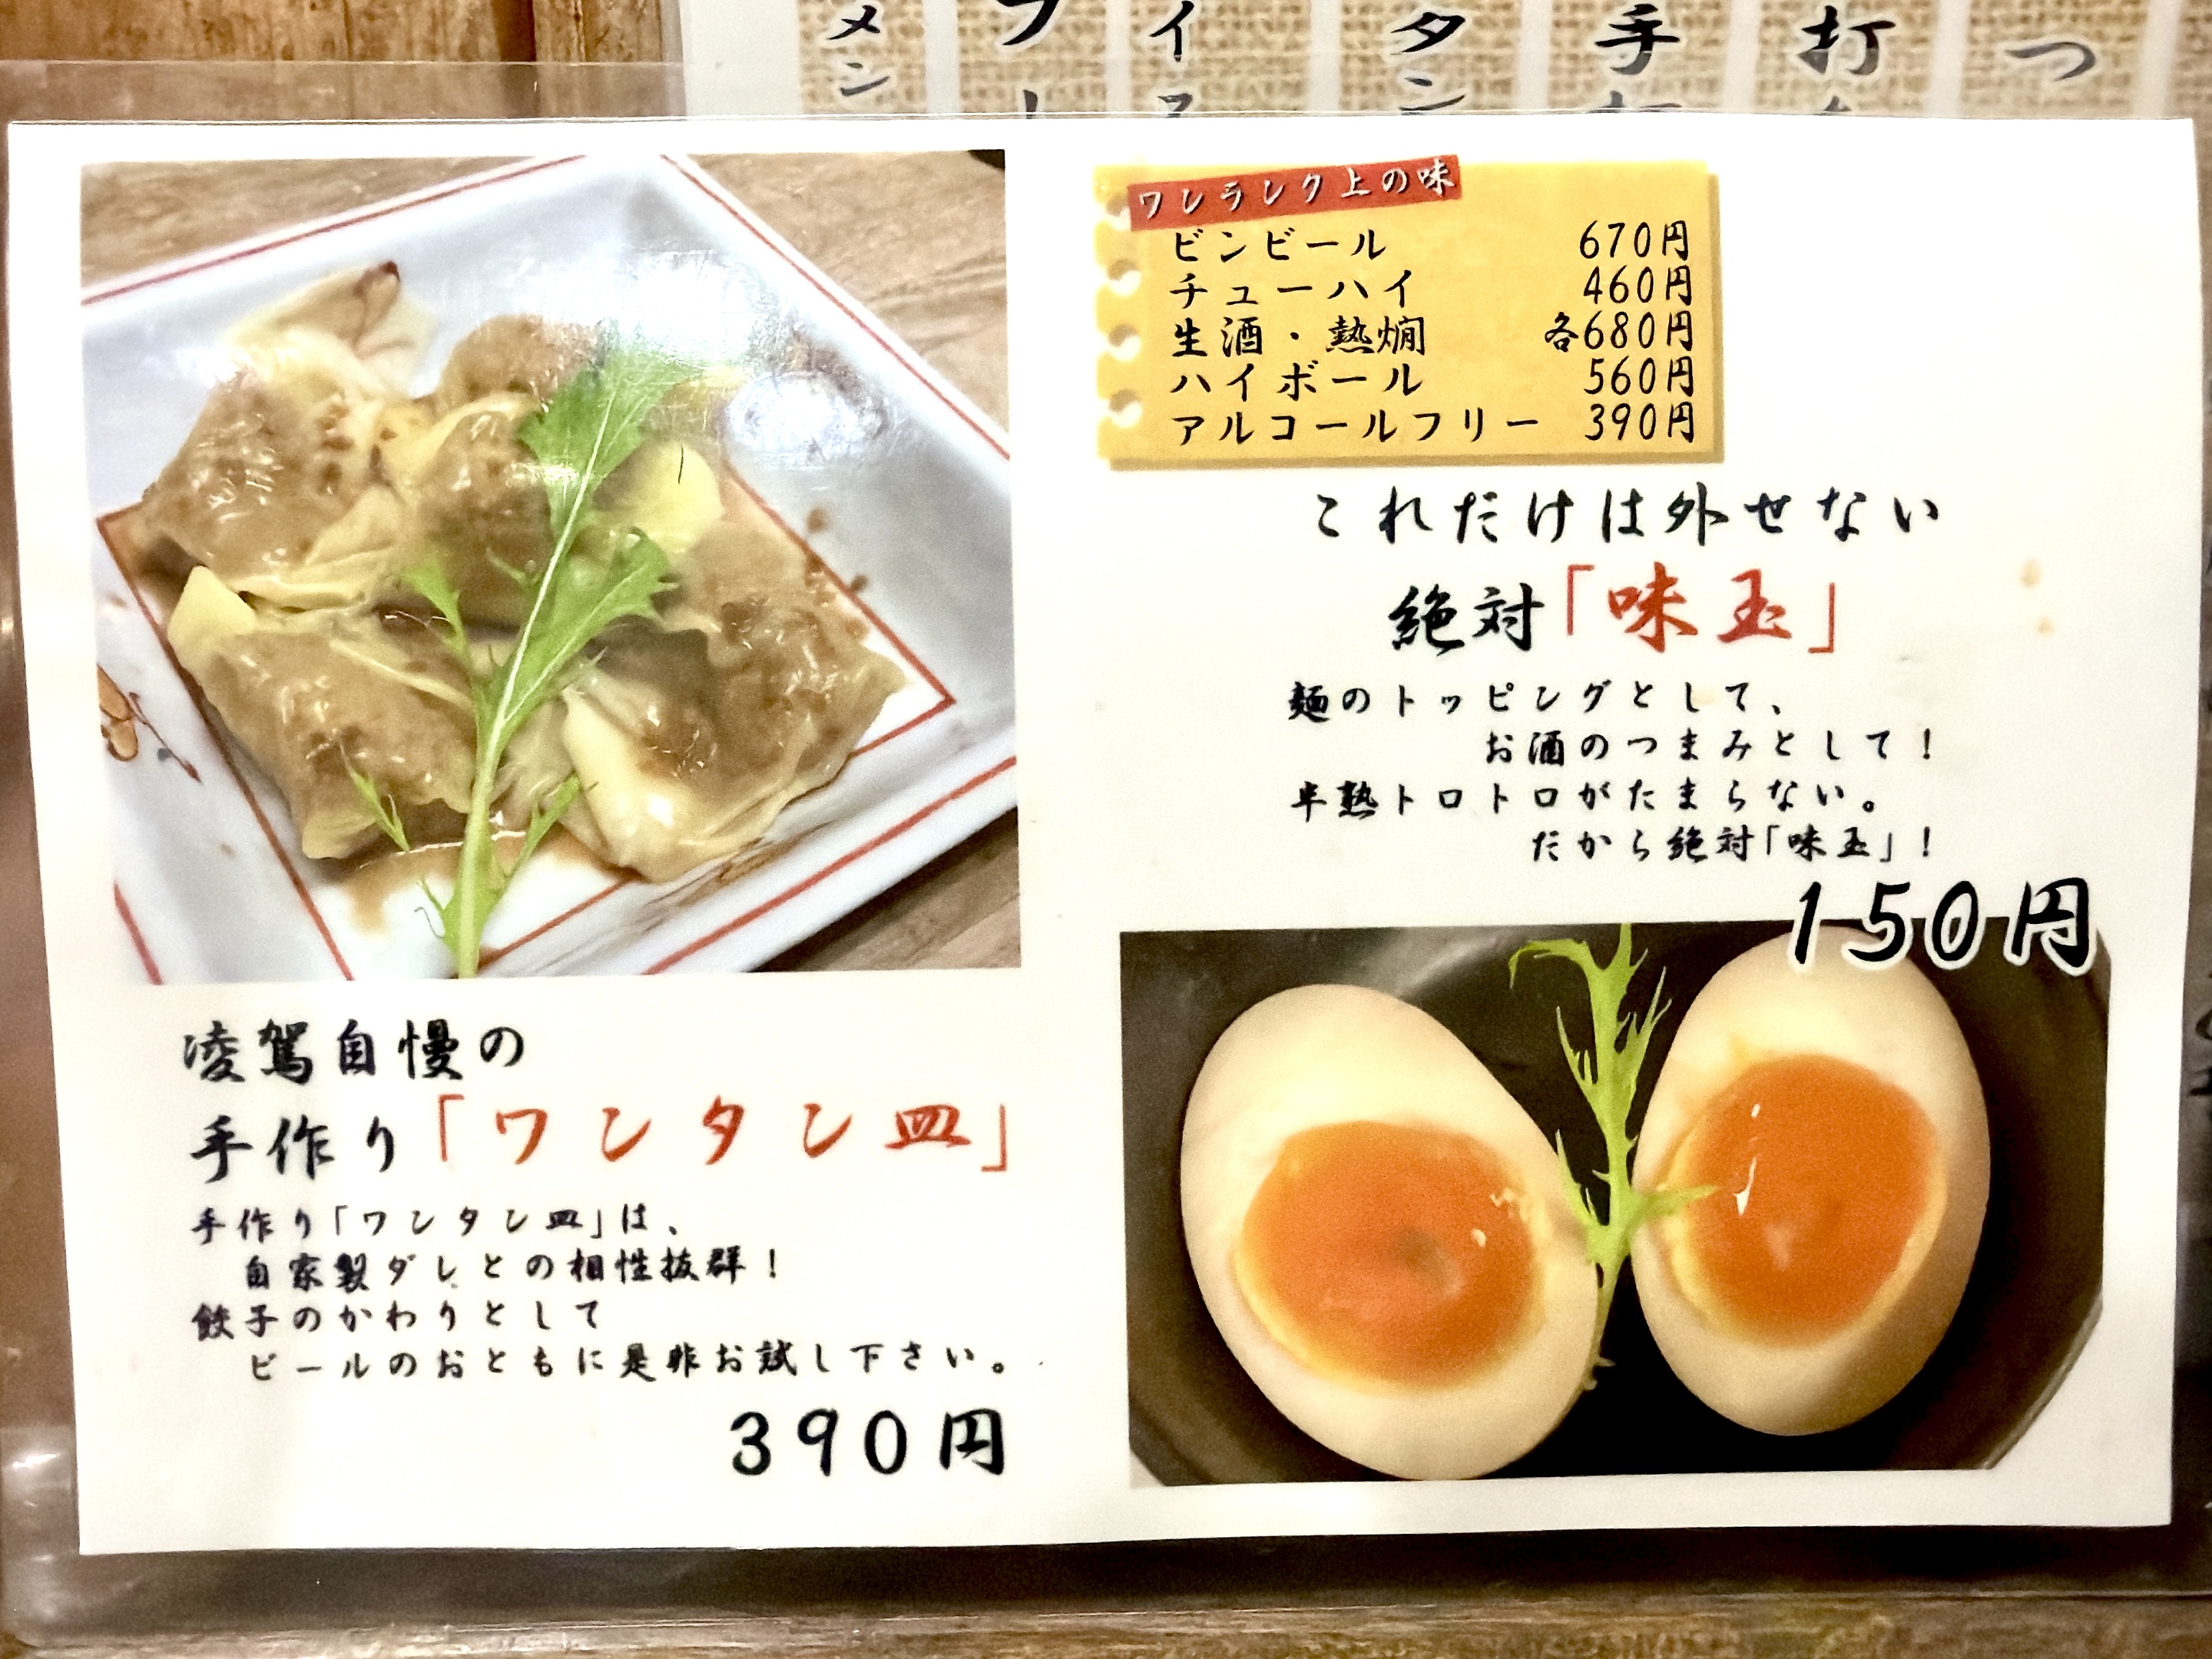 メン
イ
タン
手
打
つ
ワンランク上の味
ビンビール 670円
チューハイ 460円
生酒・熱燗 各680円
ハイボール 560円
アルコールフリー 390円
これだけは外せない
絶対「味玉」
麺のトッピングとして、
お酒のつまみとして!
半熟トロトロがたまらない。
だから絶対「味玉」!
150円
凌駕自慢の
手作り「ワンタン皿」
手作り「ワンタン皿」は、
自家製ダレとの相性抜群!
餃子のかわりとして
ビールのおともに是非お試し下さい。
390円